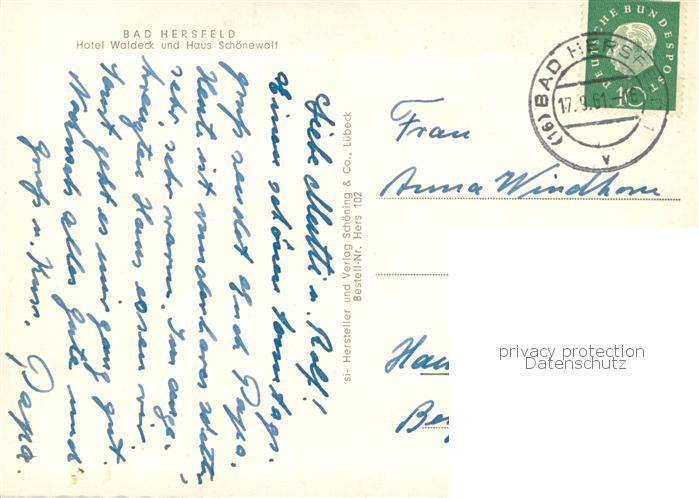 BAD HERSFELD
Hotel Waldeck und Haus Schönewolf
Liebe Mutti u. Rolf!
Einen schönen Sonntags-
gruß sendet euch Papa.
Heute ist wunderbares Wetter
sehr sehr warm. Im ange-
Haus essen wir
sonst geht es mir ganz gut.
Nochmals alles Gute und
Gruß u. Kuss, Papa.
si- Hersteller und Verlag Schöning & Co., Lübeck
Bestell-Nr. Hers 102
DEUTSCHE BUNDESPOST
10
(16) BAD HERSFELD 1
17.9.61
Frau
Anna Windhorn
privacy protection
Datenschutz